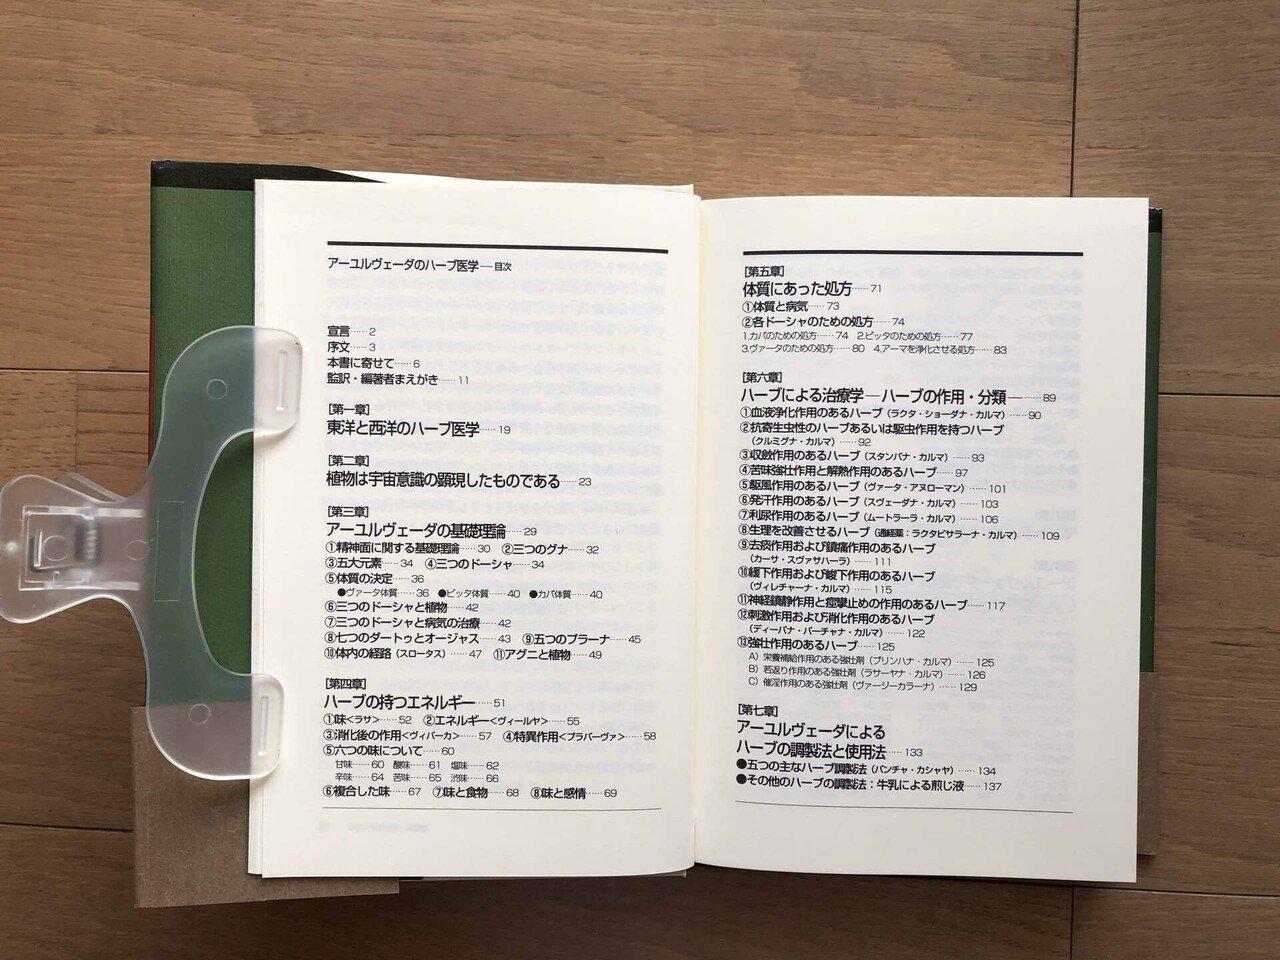 アーユルヴェーダのハーブ医学―目次
宣言……2
序文……3
本書に寄せて……6
監訳・編著者まえがき……11
[第一章]
東洋と西洋のハーブ医学……19
[第二章]
植物は宇宙意識の顕現したものである……23
[第三章]
アーユルヴェーダの基礎理論……29
①精神面に関する基礎理論……30 ②三つのグナ……32
③五大元素……34 ④三つのドーシャ……34
⑤体質の決定……36
●ヴァータ体質……36 ●ピッタ体質……40 ●カパ体質……40
⑥三つのドーシャと植物……42
⑦三つのドーシャと病気の治療……42
⑧七つのダートゥとオージャス……43 ⑨五つのプラーナ……45
⑩体内の経路（スロータス）……47 ⑪アグニと植物……49
[第四章]
ハーブの持つエネルギー……51
①味<ラサ>……52 ②エネルギー<ヴィールヤ>……55
③消化後の作用<ヴィパーカ>……57 ④特異作用<プラバーヴァ>……58
⑤六つの味について……60
甘味……60 酸味……61 塩味……62
辛味……64 苦味……65 渋味……66
⑥複合した味……67 ⑦味と食物……68 ⑧味と感情……69
[第五章]
体質にあった処方……71
①体質と病気……73
②各ドーシャのための処方……74
1.カパのための処方……74 2.ピッタのための処方……77
3.ヴァータのための処方……80 4.アーマを浄化させる処方……83
[第六章]
ハーブによる治療学―ハーブの作用・分類―……89
①血液浄化作用のあるハーブ（ラクタ・ショーダナ・カルマ）……90
②抗寄生虫性のハーブあるいは駆虫作用を持つハーブ
（クルミグナ・カルマ）……92
③収斂作用のあるハーブ（スタンバナ・カルマ）……93
④苦味強壮作用と解熱作用のあるハーブ……97
⑤駆風作用のあるハーブ（ヴァータ・アヌローマン）……101
⑥発汗作用のあるハーブ（スヴェーダナ・カルマ）……103
⑦利尿作用のあるハーブ（ムートラーラ・カルマ）……106
⑧生理を改善させるハーブ（通経薬：ラクタビサラーナ・カルマ）……109
⑨去痰作用および鎮痛作用のあるハーブ
（カーサ・スヴァサハーラ）……111
⑩緩下作用および峻下作用のあるハーブ
（ヴィレチャーナ・カルマ）……115
⑪神経鎮静作用と痙攣止めの作用のあるハーブ……117
⑫刺激作用および消化作用のあるハーブ
（ディーパナ・パーチャナ・カルマ）……122
⑬強壮作用のあるハーブ……125
A）栄養補給作用のある強壮剤（ブリンハナ・カルマ）……125
B）若返り作用のある強壮剤（ラサーヤナ・カルマ）……126
C）催淫作用のある強壮剤（ヴァージーカラーナ）……129
[第七章]
アーユルヴェーダによる
ハーブの調製法と使用法……133
●五つの主なハーブ調製法（パンチャ・カシャヤ）……134
●その他のハーブの調製法：牛乳による煎じ液……137